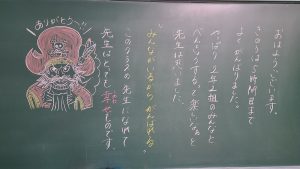 おはようございます。
きのうは5時間目まで
よくがんばりました。
やっぱり2年2組のみんなと
べんきょうするって楽しいなぁと
先生は思いました。
"みんながいるからがんばれる"
このクラスの先生になれて
先生はとっても幸せものです。
ありがとう